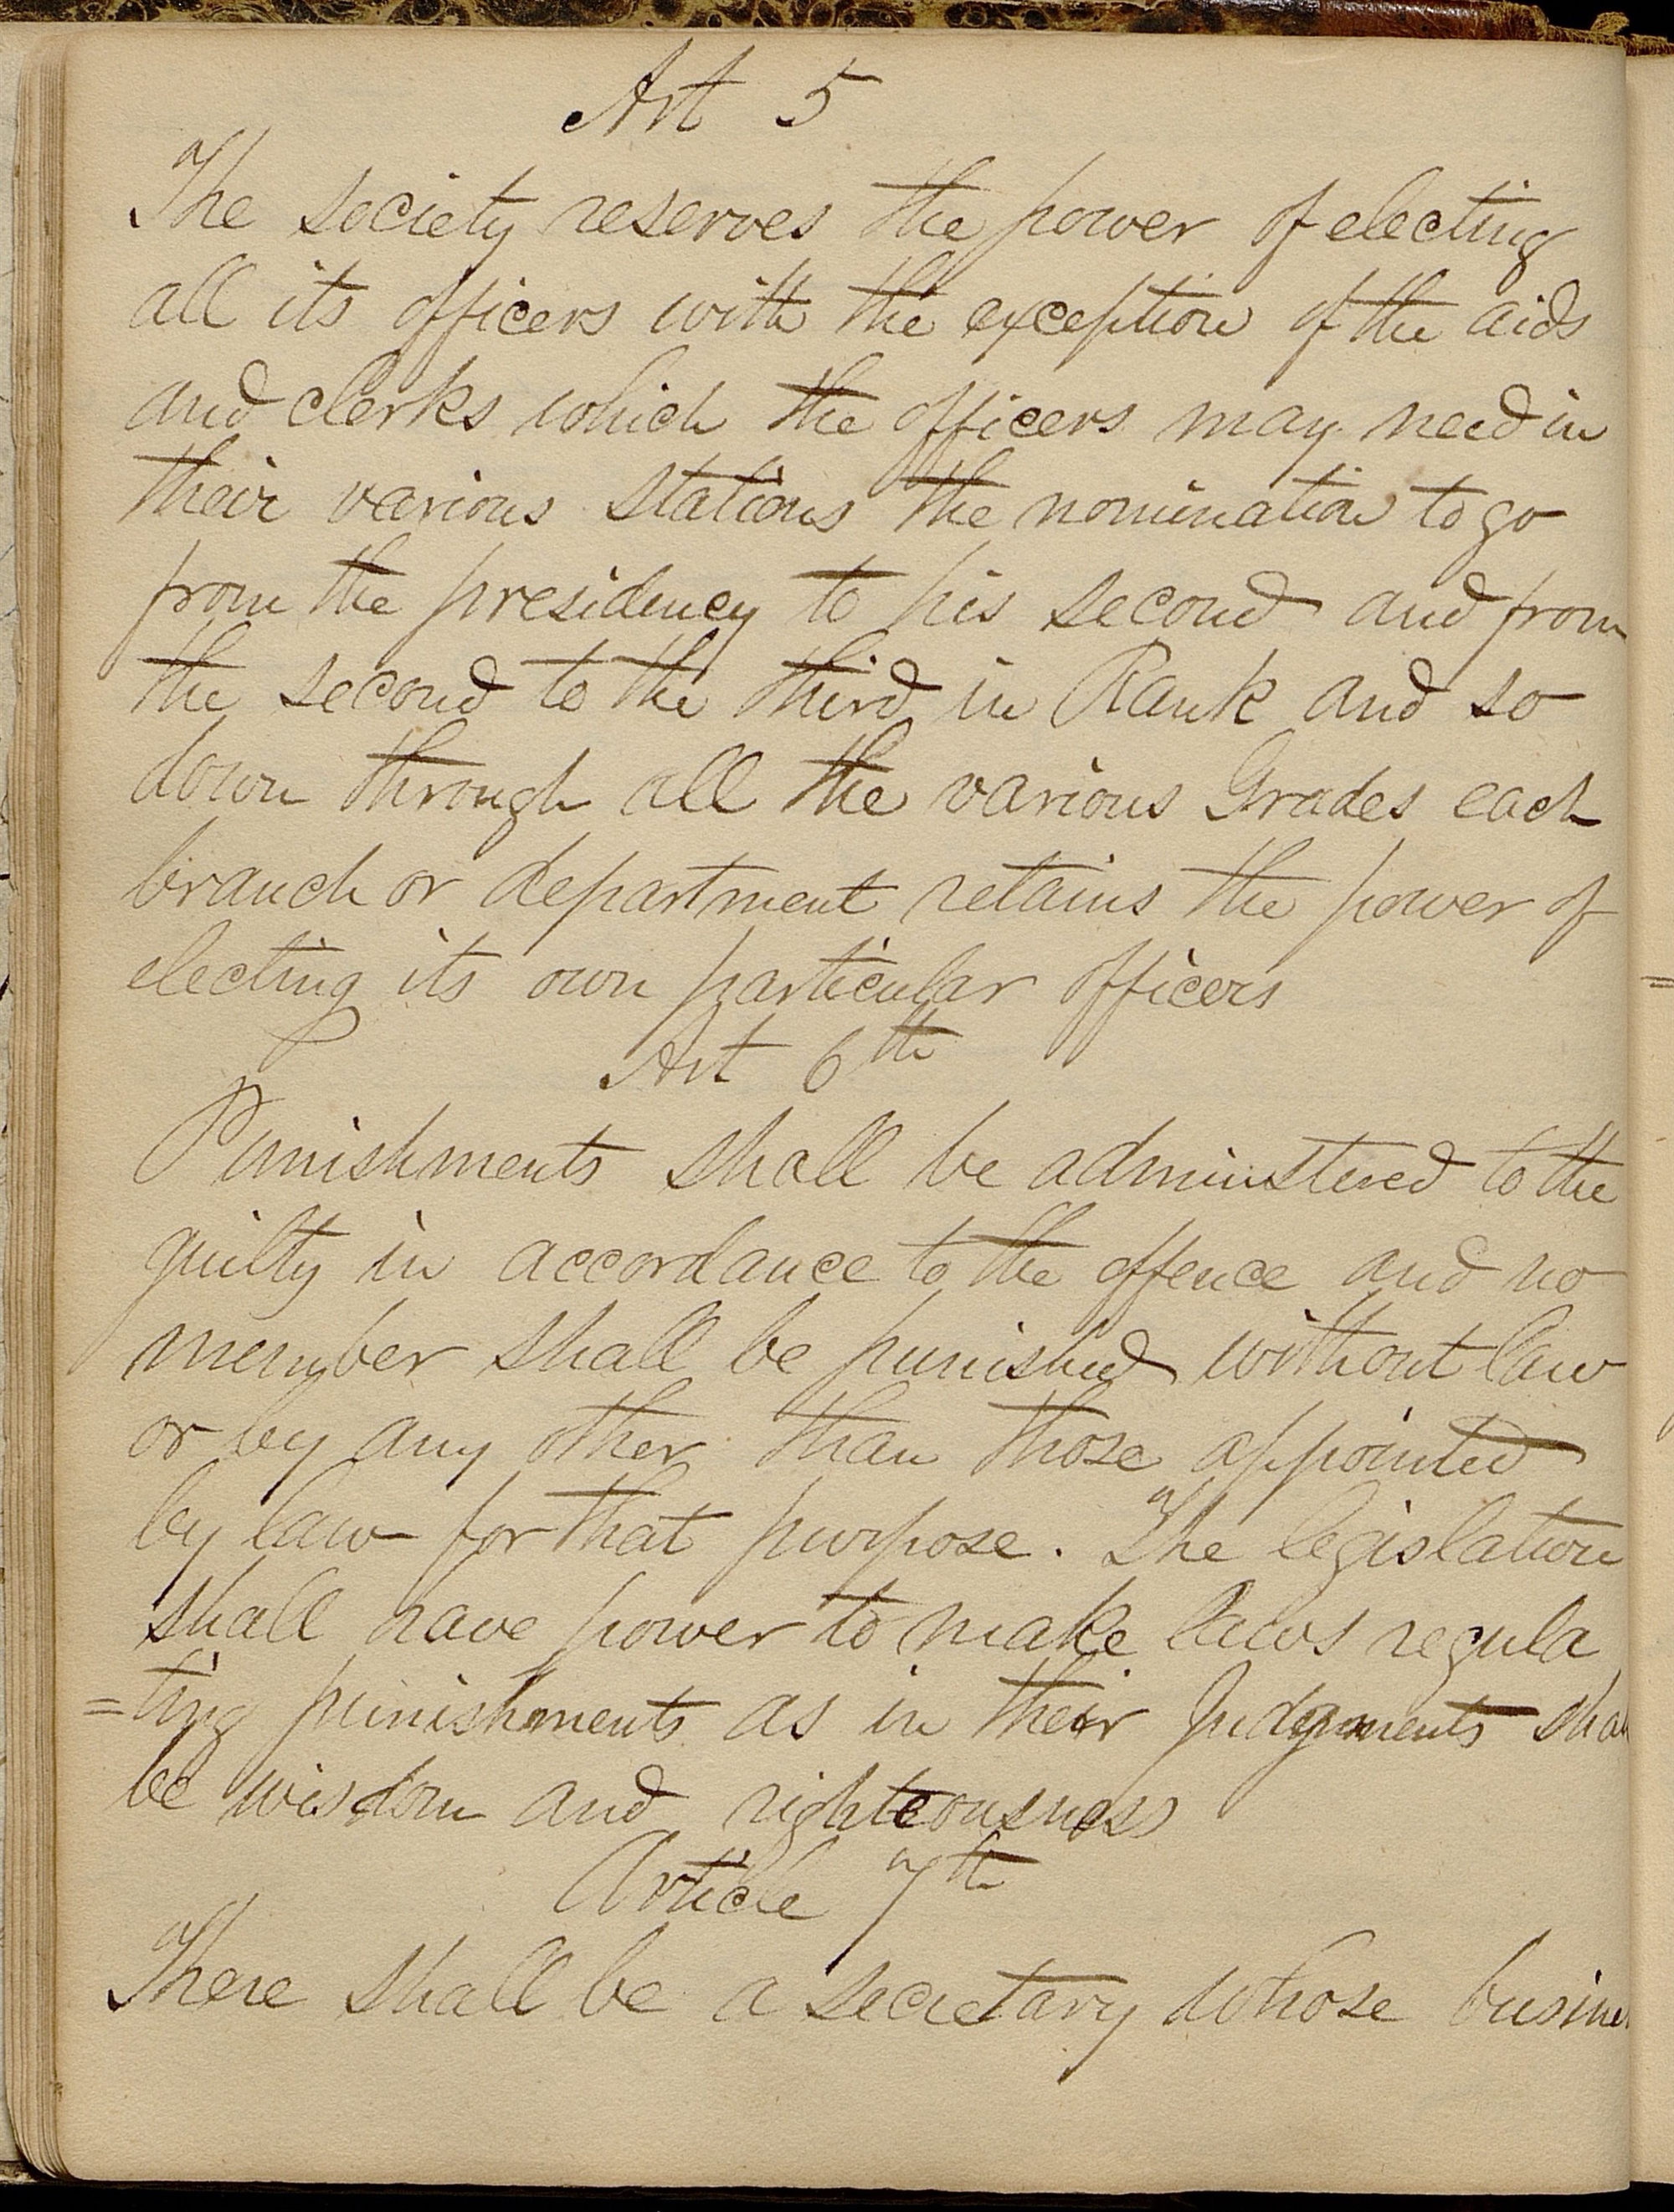 Art 5
The society reserves the power of electing
all its officers with the exception of the aids
and clerks which the officers may need in
their various stations the nomination to go
from the presidency to his second and from
the second to the third in Rank and so
down through all the various Grades each
branch or department retains the power of
electing its own particular officers
Art 6th
Punishments shall be administered to the
guilty in accordance to the offence and no
member shall be punished without law
or by any other than those appointed
by law for that purpose. The legislation
shall have power to make laws regula
=ting punishments as in their Judgments shall
be wisdom and righteousness
Article 7th
There shall be a secretary whose busine